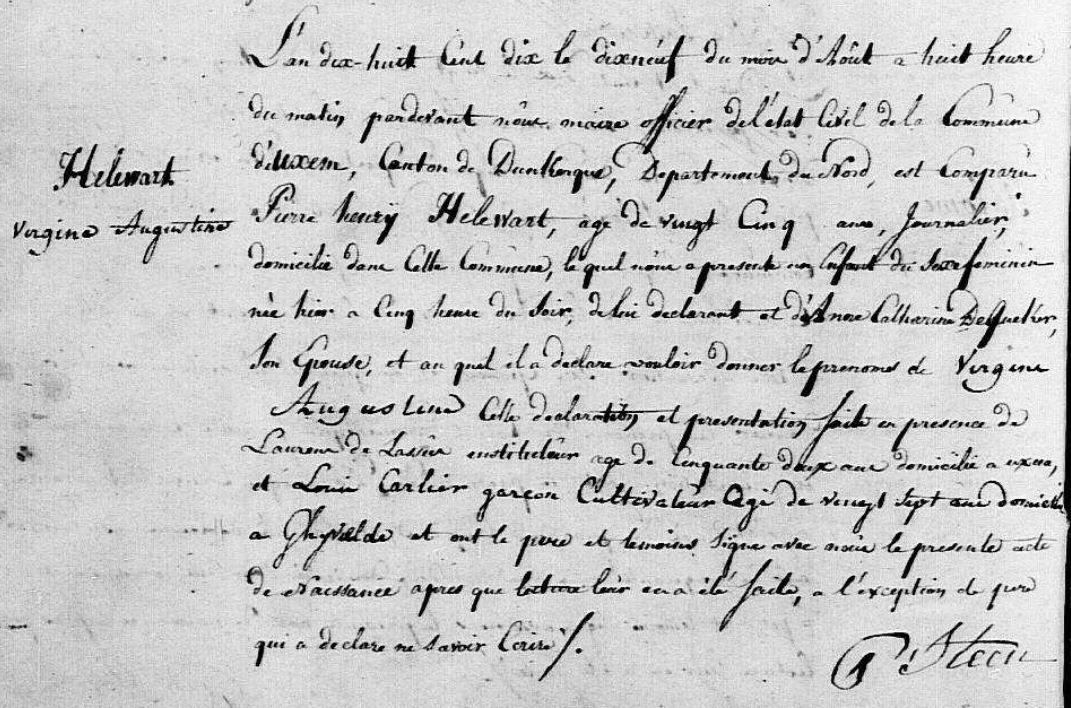 Helewart
Virgine Augustine
L'an dix-huit Cent dix le dixneuf du mois d'Aôut a huit heure
du matin pardevant nous maire officier de l'état Civil de la Commune
d'uxem, Canton de Dunkerque, Departement du Nord, est Comparu
Pierre henrÿ Helewart, agé de vingt Cinq ans, Journalier,
domicilié dans Cette Commune, le quel nous a presenté un Enfant du Sexe feminin
née hier a Cinq heure du Soir, de lui declarant et d'Anne Catharine DeQueker,
Son Epouse, et au quel il a declare vouloir donner le prenoms de Virgine
Augustine Cette declaration et presentation faite en presence de
Laurens de Lassus enstituteur age de Cenquante deux ans domicilié a uxem,
et Louis Carlier garçon Cultivateur Agé de vengt Sept ans domicilié
a Ghyvelde et ont le pere et temoins Signe avec nous le presente acte
de Naissance apres que lecture leur en a été faite, a l'éxception de pere
qui a declare ne Savoir Ecrire /.
Steen